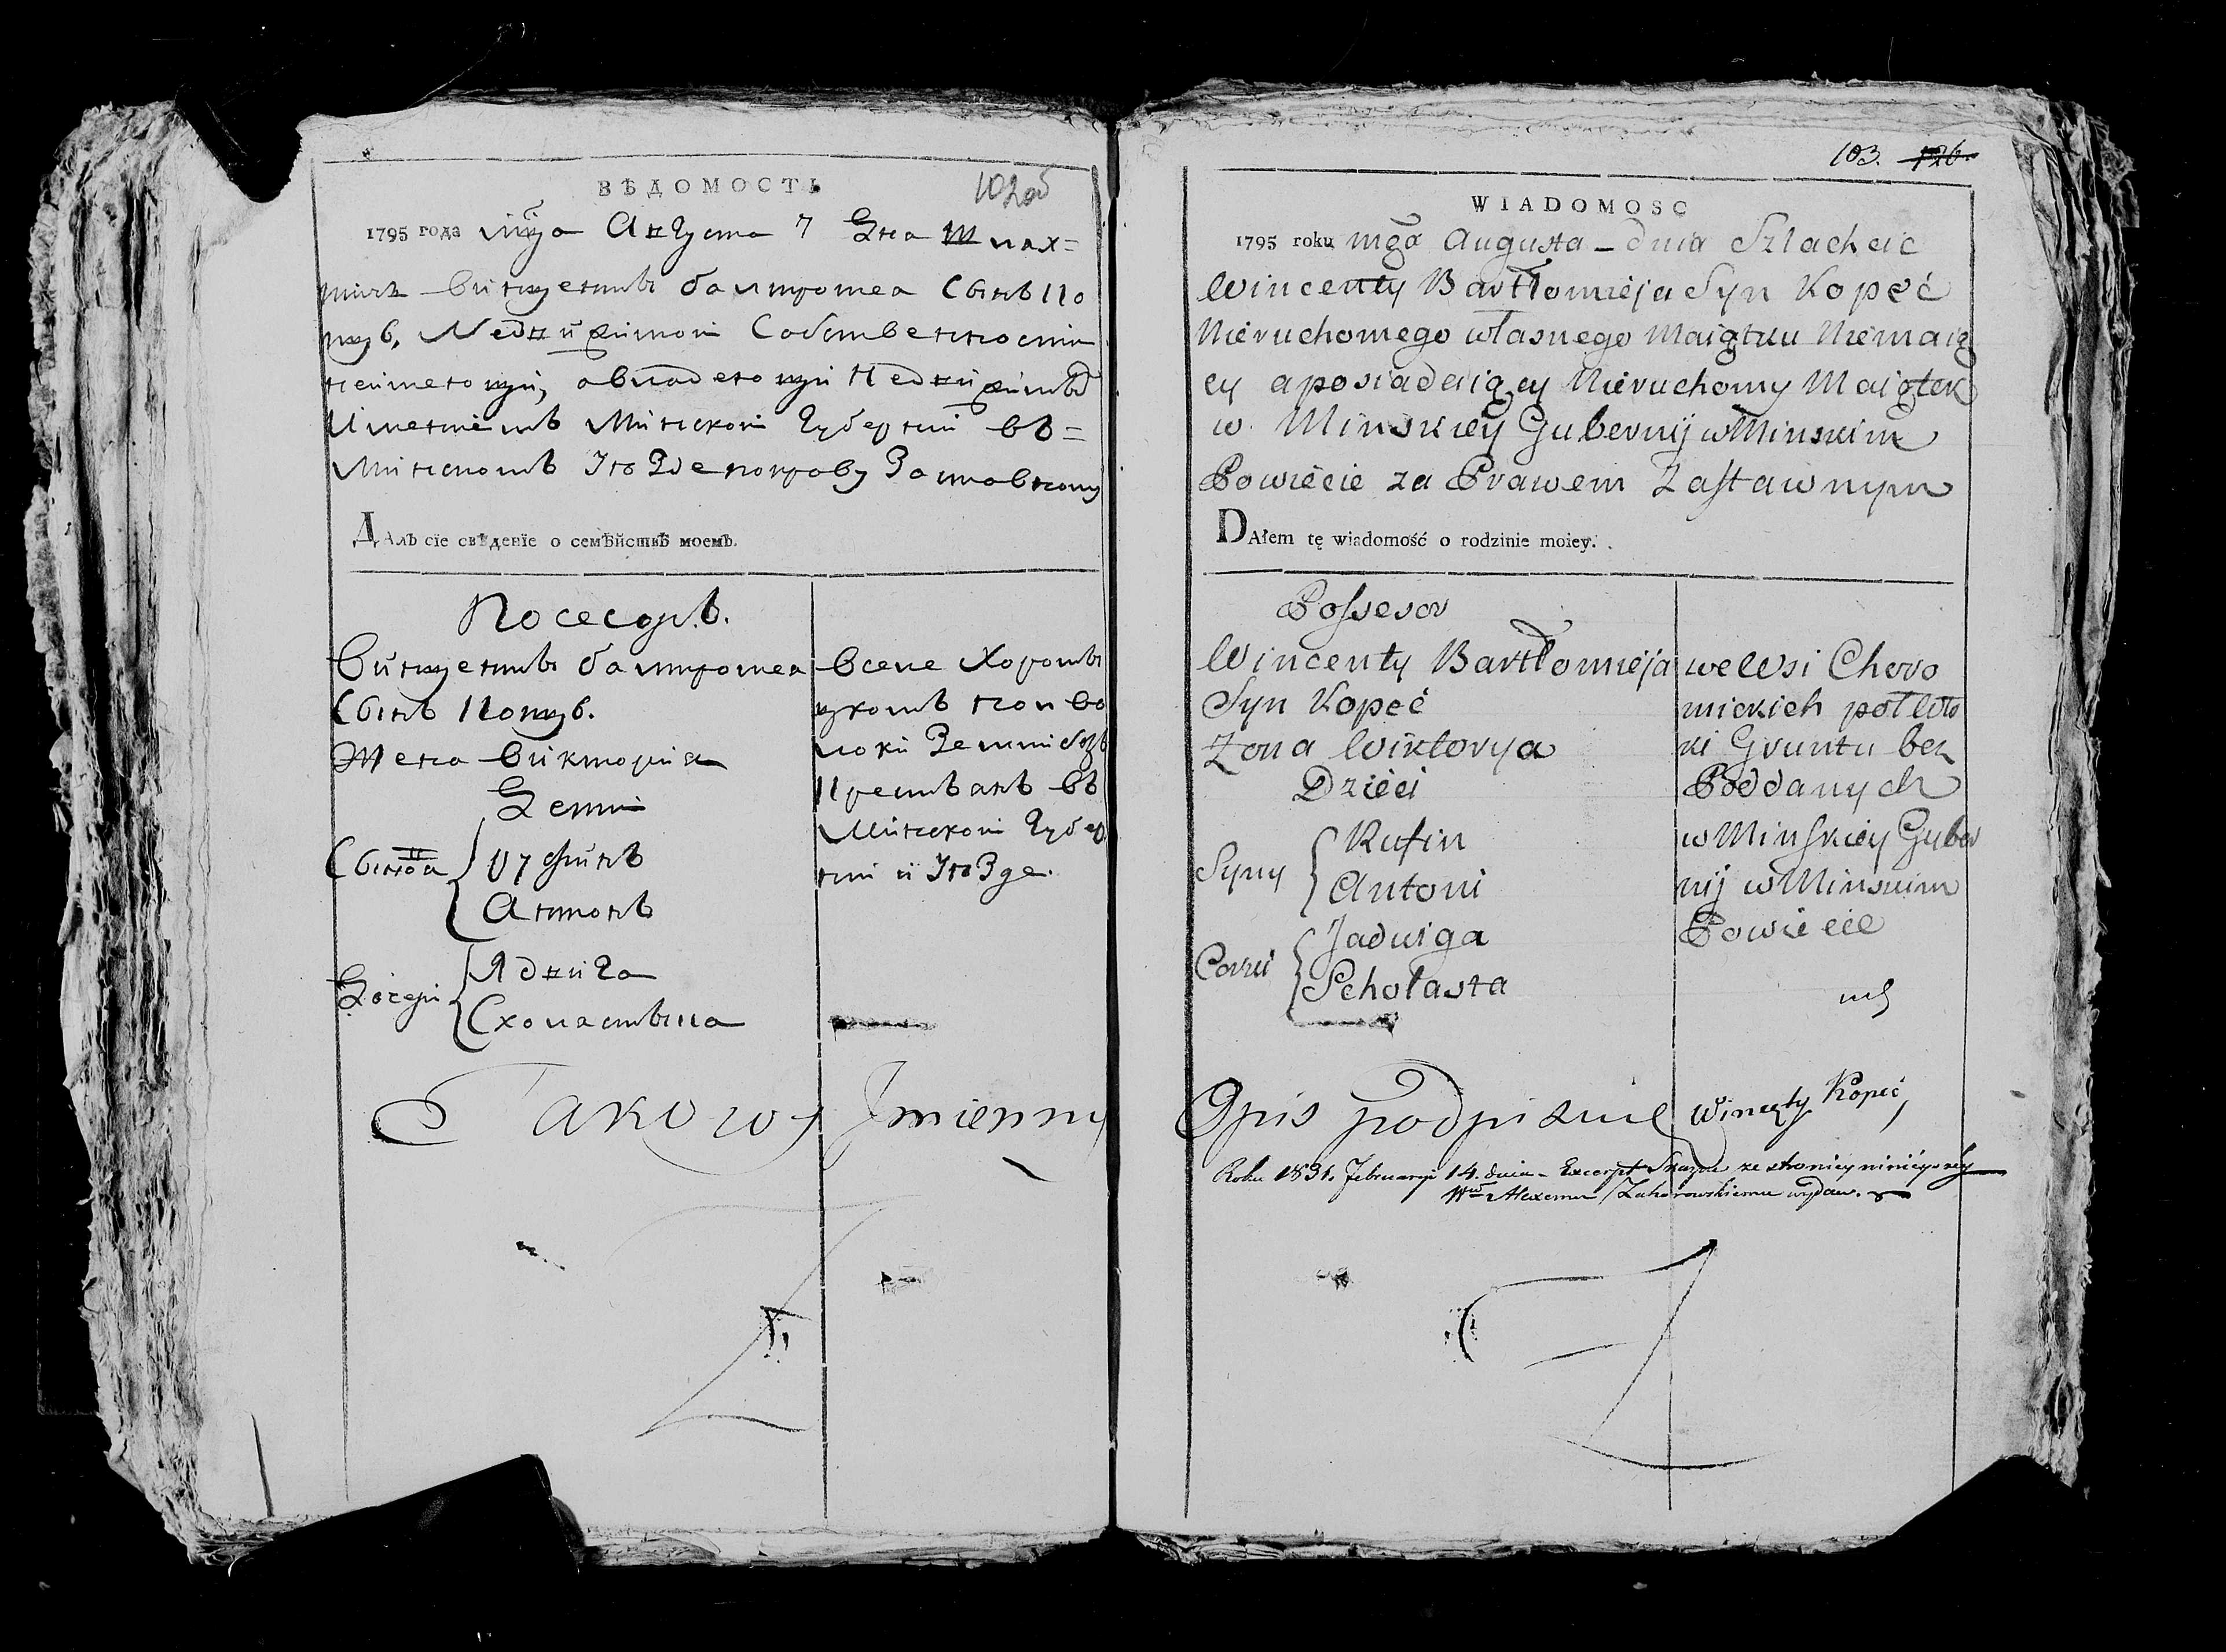 ВѢДОМОСТЬ
102об
1795 года мца Августа 7 Дня Шлях=
тичъ Винценты Балтромея Сынъ Ко
пуь, Недвижимой Собственности
неимеющи, авладеющи Недвижимы
Имениемъ Минской Губернии въ=
Минскомъ Уездепоправу Заставному
ДАлЪ сїе свѣденїе о семѣйствѣ моемЪ.
Посесоръ.
Винценты Балтромея
Сынъ Копуь.
Жена Виктория
Дети
Сыновя
Руфинъ
Антонъ
Дочери
Ядвига
Схоластыка
Вселе Хоромы
цкомъ пол во
локи Земли безъ
Крестьянъ въ
Минской Губер
нии и Уезде.
Takowy Jmienny
103. 126.
WIADOMOSC
1795 roku mca Augusta _ dnia Szlachcic
Wincenty Bartłomieja Syn Kopeć
Nieruchomego własnego Maiątku Niemaią
cy aposiadaiący Nieruchomy Maiątek
w Minskiey Gubernij wMinskim
Powiecie za Prawem Zastawnym
DAłem tę wiadomość o rodzinie moiey.
Possesor
Wincenty Bartłomieja
Syn Kopeć
Zona Wiktorya
Dzieci
Syny
Rufin
Antoni
Corki
Jadwiga
Scholasta
weWsi Choro
mickich poł Wło
ki Gruntu bez
Poddanych
wMinskiey Guber
nij wMinskim
Powiecie
Opis podpisuie Wincęty Kopeć,
Roku 1831. Februaryi 14. dnia _ Excerpt Skazki ze stronicy ninieyszey
Alexemu Zahorowskiemu wydan.